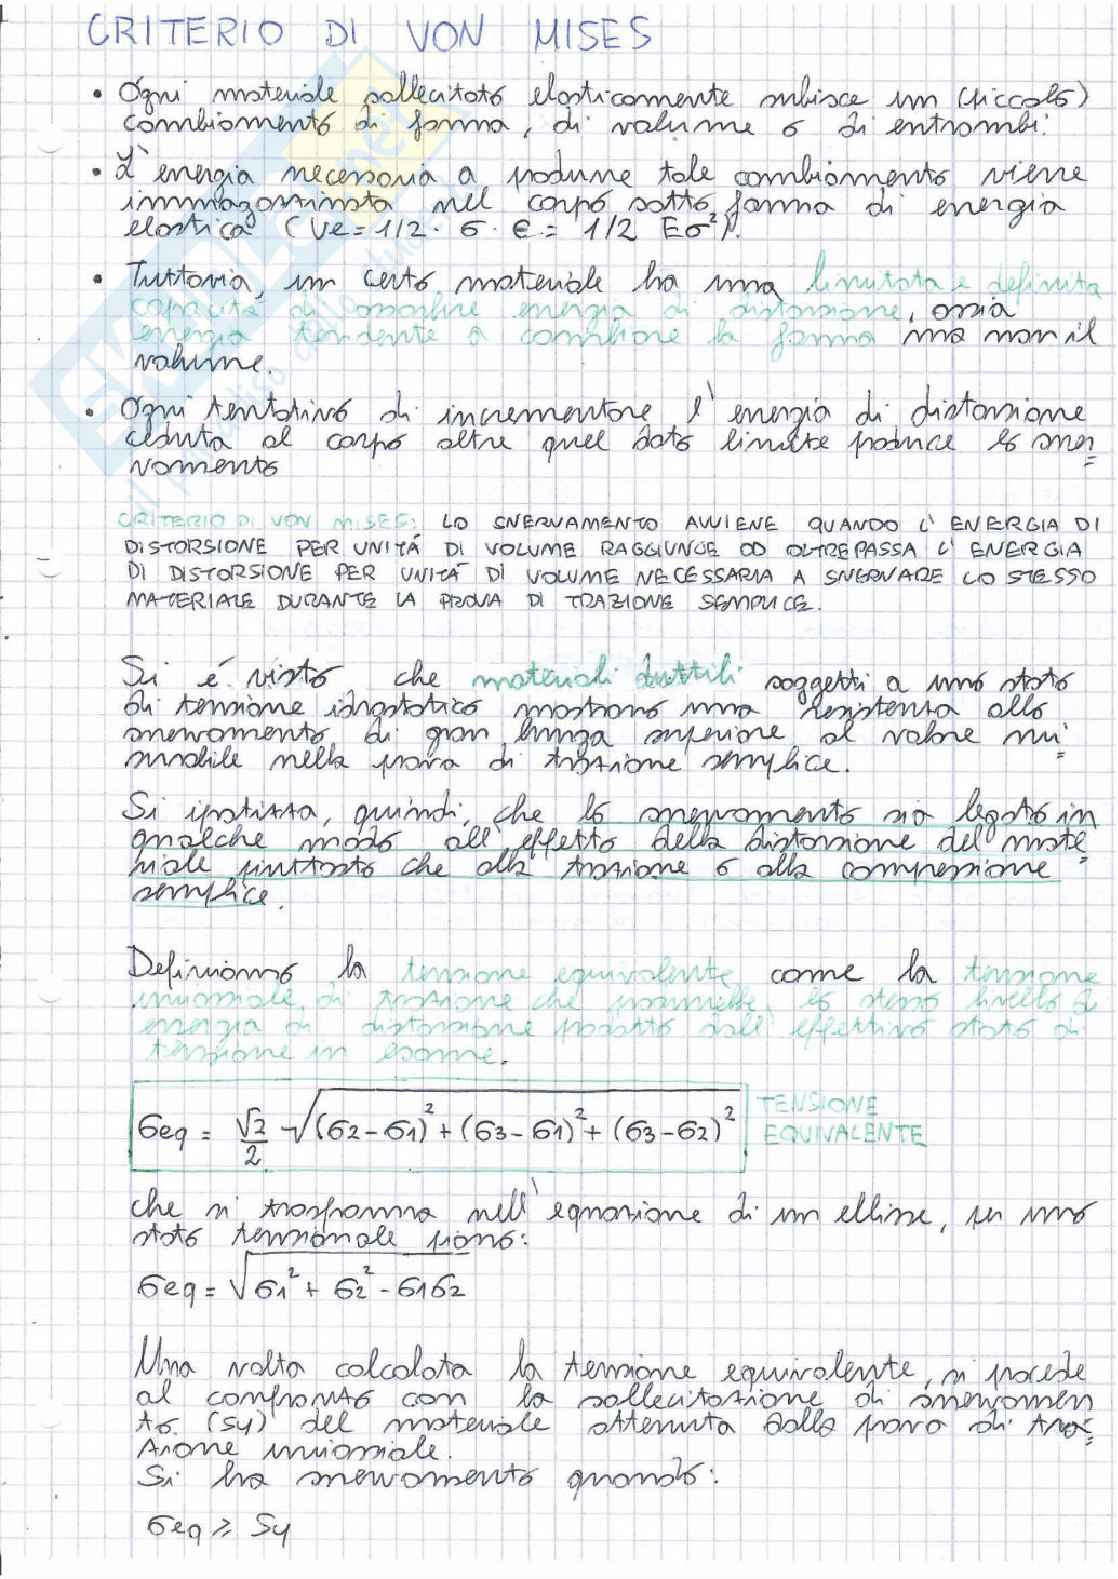 CRITERIO DI VON MISES
• Ogni materiale sollecitato elasticamente subisce un (piccolo)
cambiamento di forma, di volume o di entrambi.
• L'energia necessaria a produrre tale cambiamento viene
immagazzinata nel corpo sotto forma di energia
elastica (Ue = 1/2 · σ · ε = 1/2 Eσ²).
• Tuttavia, un certo materiale ha una limitata e definita
capacità di assorbire energia di distorsione, ossia
energia tendente a cambiare la forma ma non il
volume.
• Ogni tentativo di incrementare l'energia di distorsione
ceduta al corpo oltre quel dato limite produce lo sner=
vamento
CRITERIO DI VON MISES: LO SNERVAMENTO AVVIENE QUANDO L'ENERGIA DI
DISTORSIONE PER UNITÁ DI VOLUME RAGGIUNGE OD OLTREPASSA L'ENERGIA
DI DISTORSIONE PER UNITÁ DI VOLUME NECESSARIA A SNERVARE LO STESSO
MATERIALE DURANTE LA PROVA DI TRAZIONE SEMPLICE.
Si é visto che materiali duttili soggetti a uno stato
di tensione idrostatico mostrano una resistenza allo
snervamento di gran lunga superiore al valore mi=
surabile nella prova di trazione semplice.
Si ipotizza, quindi, che lo snervamento sia legato in
qualche modo all'effetto della distorsione del mate=
riale piuttosto che alla trazione o alla compressione
semplice.
Definiamo la tensione equivalente come la tensione
uniassiale di trazione che produrrebbe lo stesso livello di
energia di distorsione prodotto dall'effettivo stato di
tensione in esame.
σeq = √2/2 √(σ2-σ1)²+(σ3-σ1)²+(σ3-σ2)² TENSIONE
EQUIVALENTE
che si trasforma nell'equazione di un ellisse, per uno
stato tensionale piano:
σeq = √σ1² + σ2² - σ1σ2
Una volta calcolata la tensione equivalente, si procede
al confronto con la sollecitazione di snervamen
to (Sy) del materiale ottenuta dalla prova di tra=
zione uniassiale.
Si ha snervamento quando:
σeq ≥ Sy